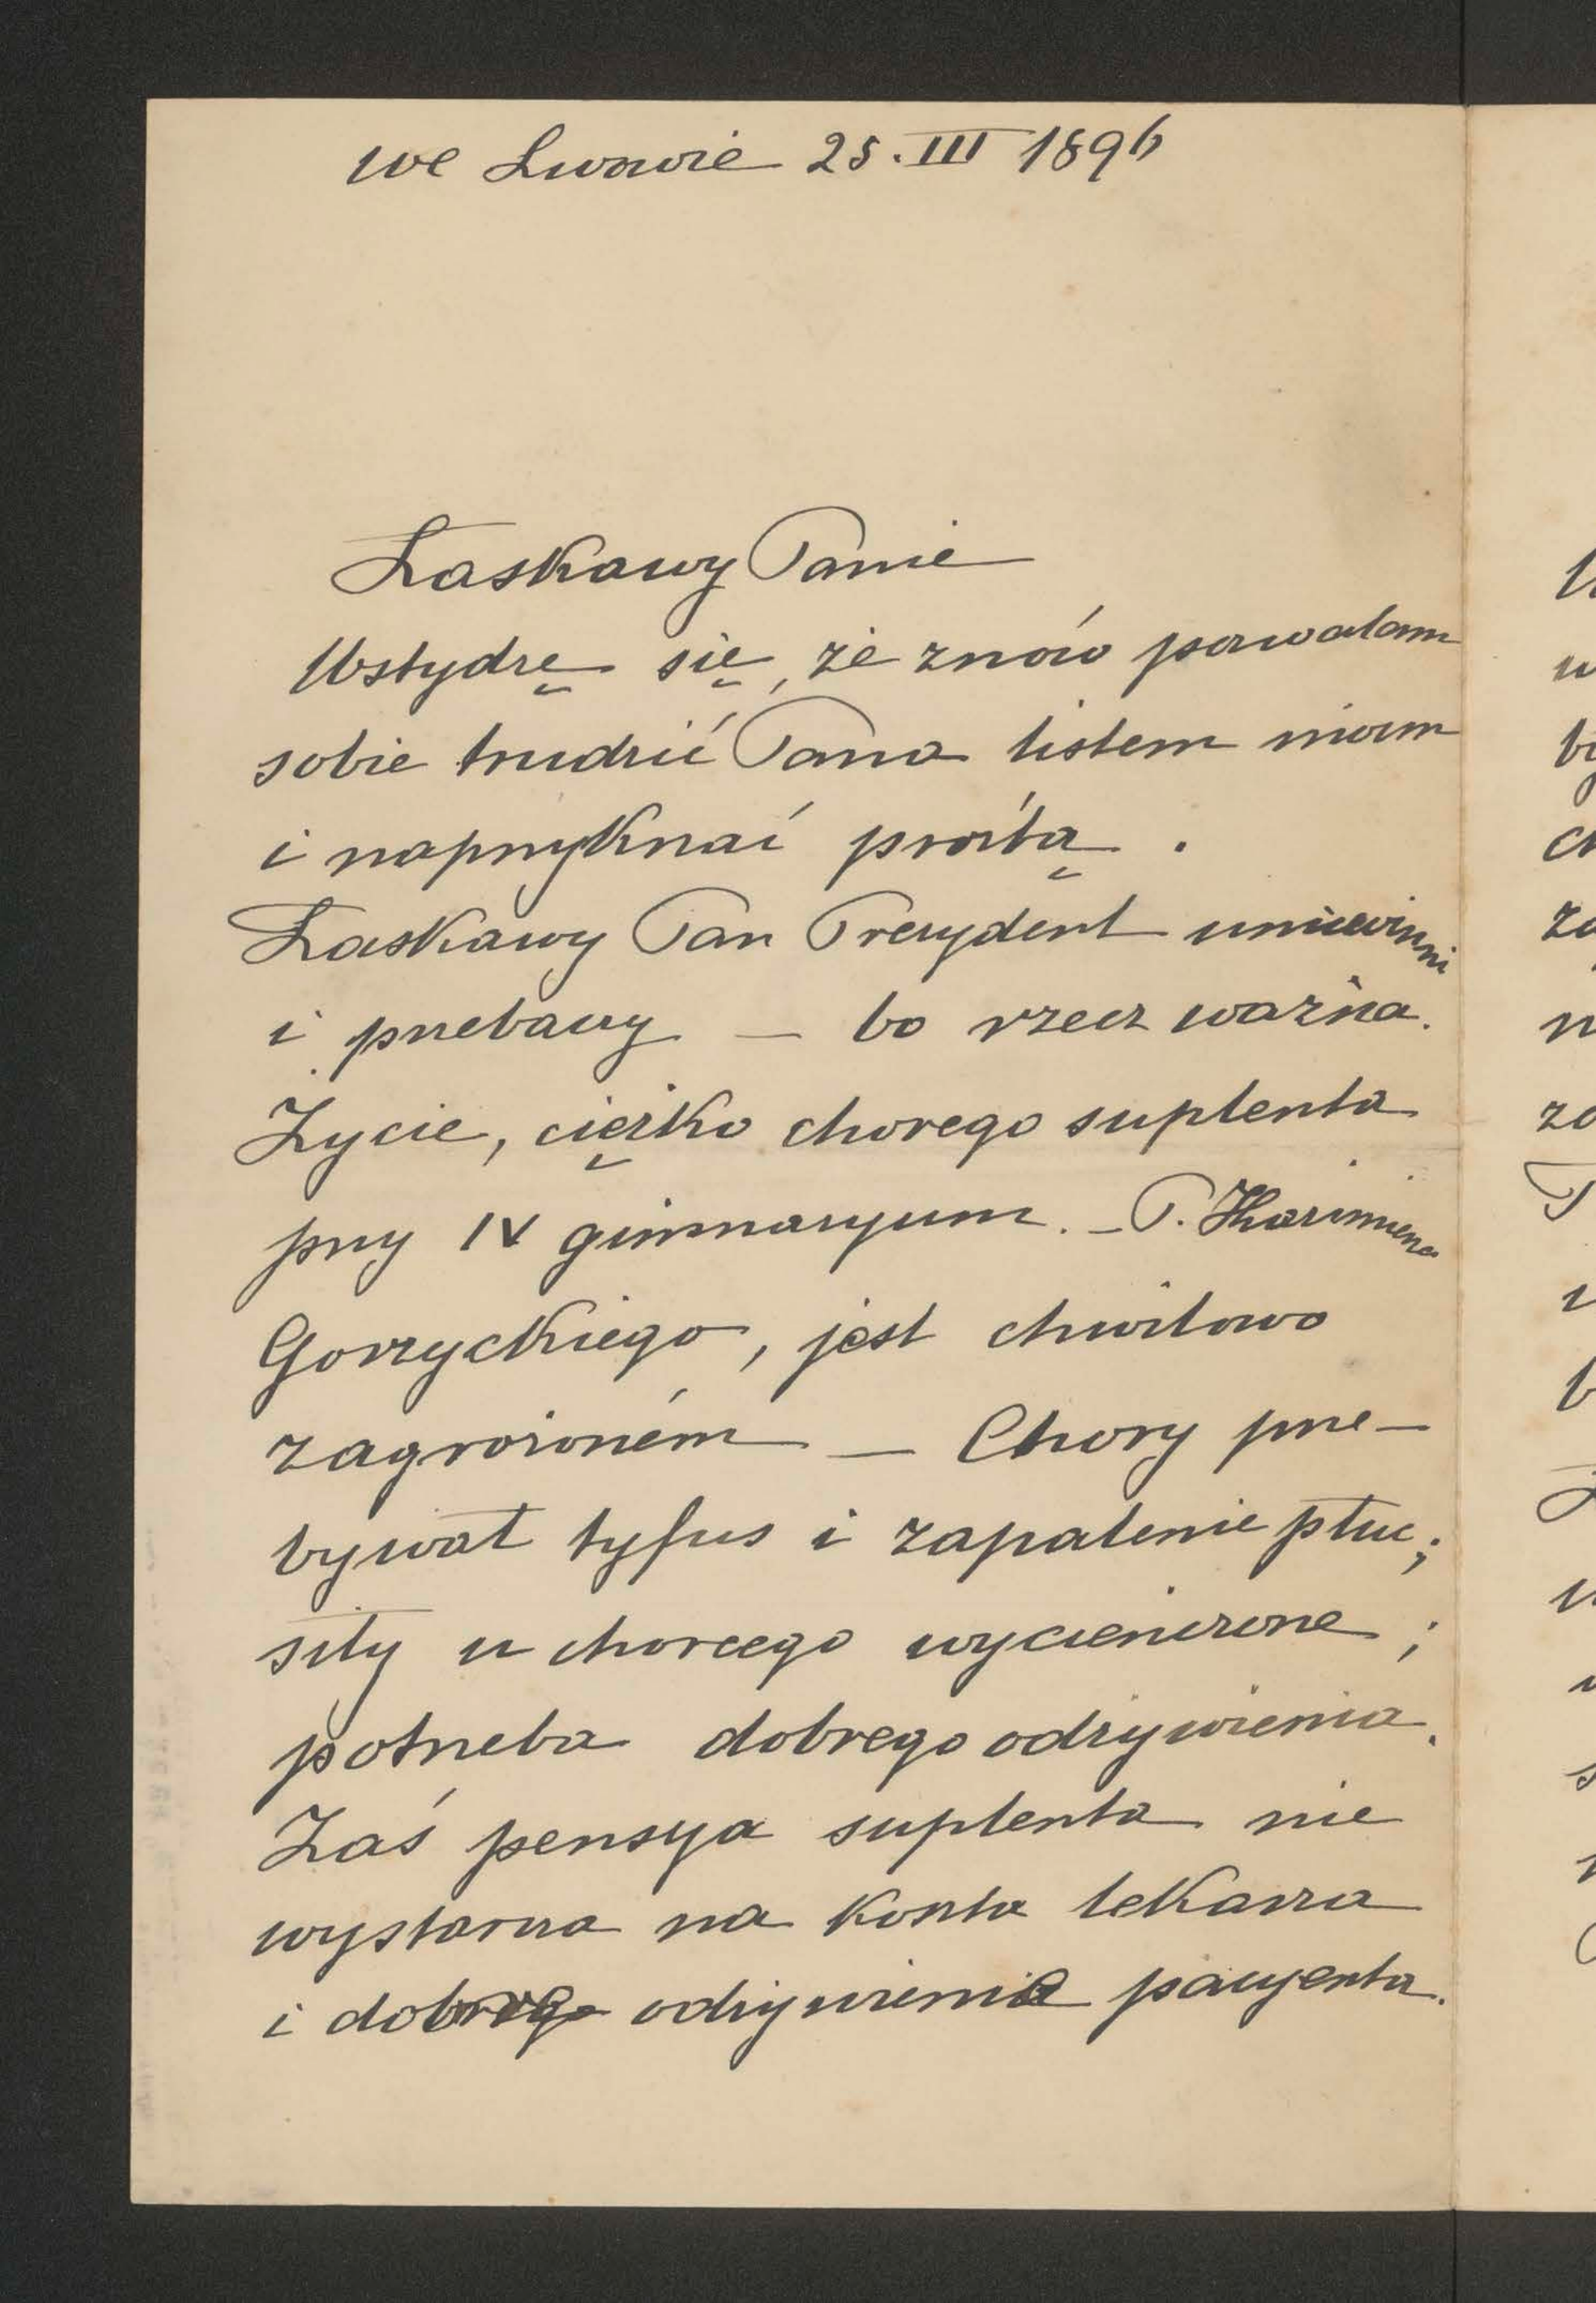 we Lwowie 25. III 1896
Łaskawy Panie
Wstydzę się, że znów pozwalam
sobie trudzić Pana listem moim
i naprzykrzać prośbą.
Łaskawy Pan Prezydent uniewinni
i przebaczy — bo rzecz ważna.
Życie, ciężko chorego suplenta
przy IV gimnazyum. – P. Kazimierza
Gorzyckiego, jest chwilowo
zagrożoném — Chory prze-
bywał tyfus i zapalenie płuc;
siły u chorego wycieńczone;
potrzeba dobrego odżywienia.
Zaś pensya suplenta nie
wystarcza na koszta lekarza
i dobre odżywienie pacyenta.